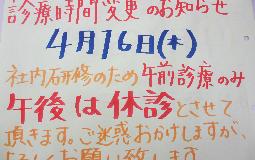 診療時間変更のお知らせ
4月16日(木)
社内研修のため午前診療のみ
午後は休診とさせて
頂きます。ご迷惑おかけしますが、
よろしくお願い致します